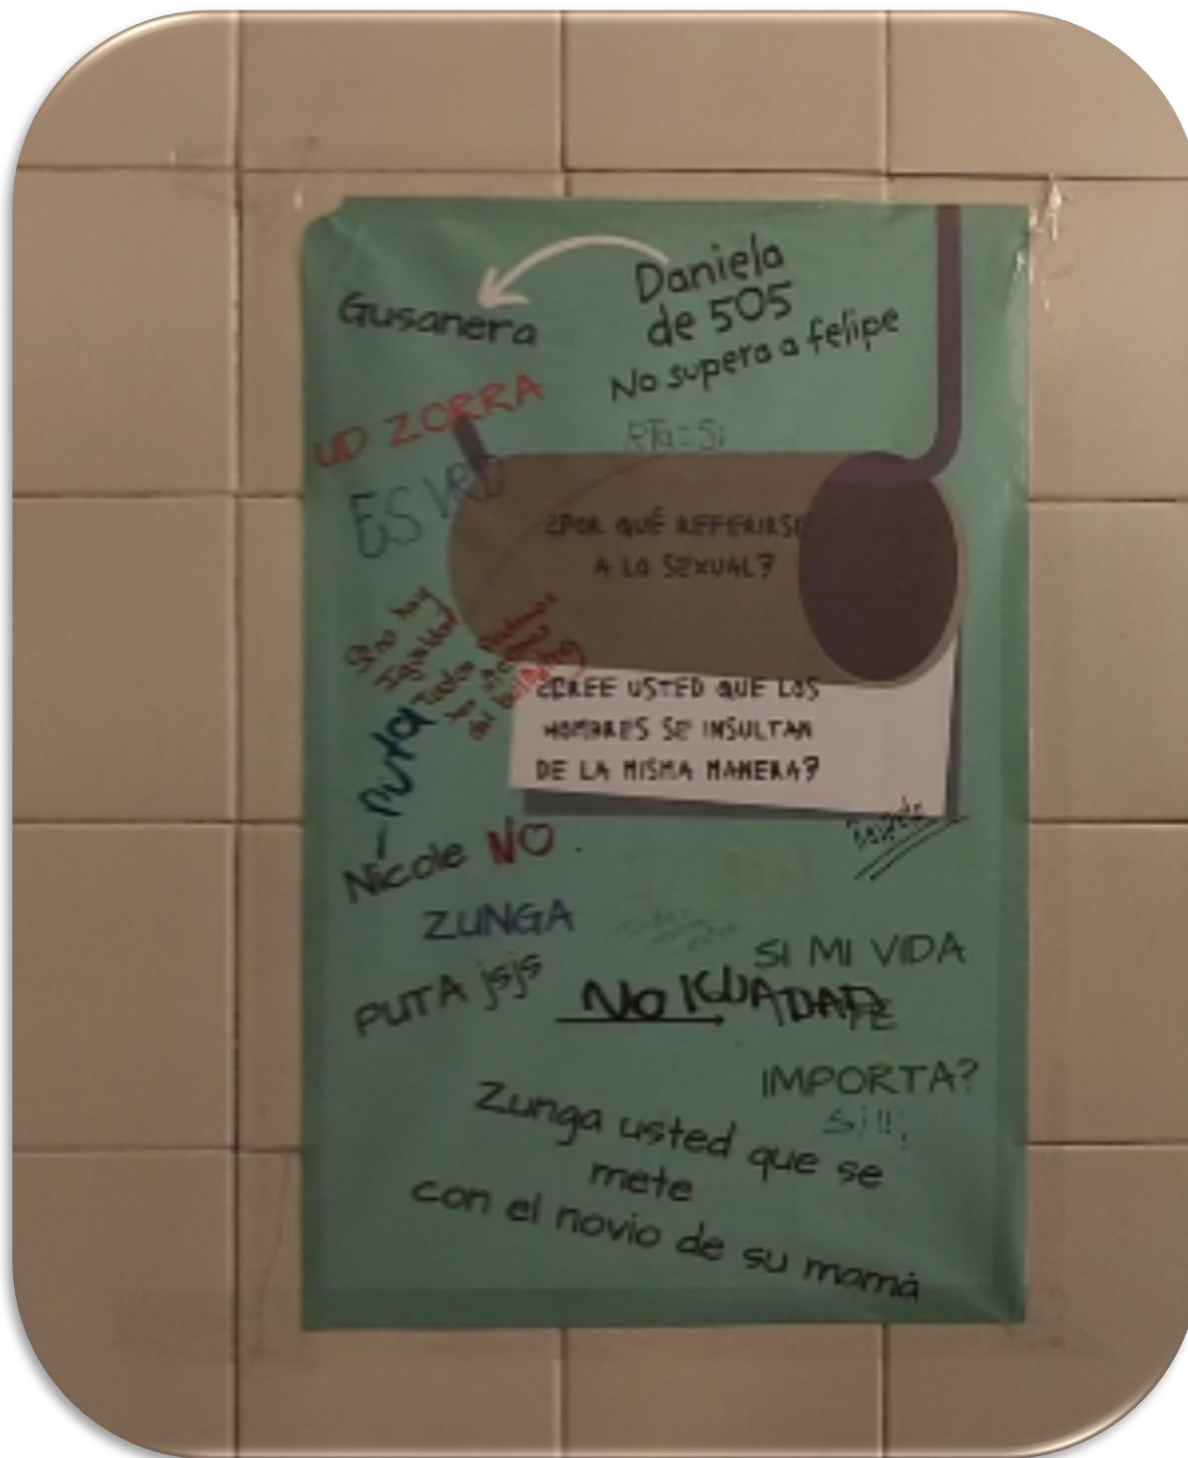 Daniela
de 505
Gusanera
No supera a felipe
UD ZORRA
RTa=Si
¿POR QUÉ REFERIRSE
A LO SEXUAL?
Si no hay
Igualdad
Todos
¿CREE USTED QUE LOS
HOMBRES SE INSULTAN
DE LA MISMA MANERA?
- puta
Nicole NO
ZUNGA
SI MI VIDA
PUTA jsjs
No
IMPORTA?
Si!!!
Zunga usted que se
mete
con el novio de su mamá